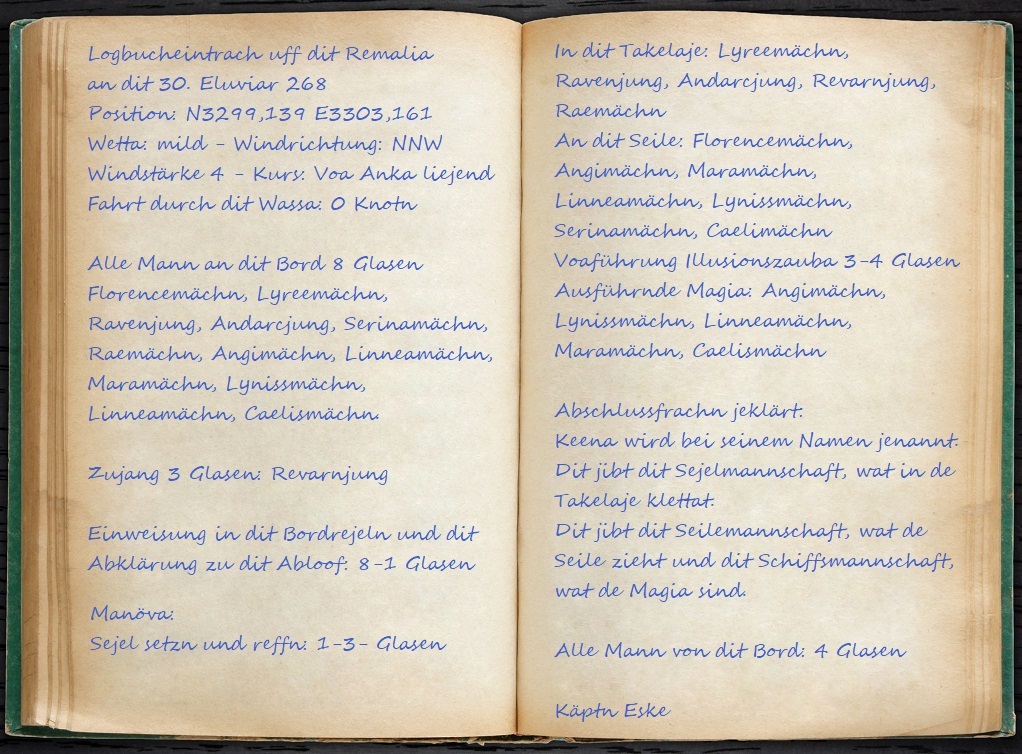 Logbucheintrach uff dit Remalia
an dit 30. Eluviar 268
Position: N3299,139 E3303,161
Wetta: mild - Windrichtung: NNW
Windstärke 4 - Kurs: Voa Anka liejend
Fahrt durch dit Wassa: 0 Knotn
Alle Mann an dit Bord 8 Glasen
Florencemächn, Lyreemächn,
Ravenjung, Andarcjung, Serinamächn,
Raemächn, Angimächn, Linneamächn,
Maramächn, Lynissmächn,
Linneamächn, Caelismächn.
Zujang 3 Glasen: Revarnjung
Einweisung in dit Bordrejeln und dit
Abklärung zu dit Abloof: 8-1 Glasen
Manöva:
Sejel setzn und reffn: 1-3- Glasen
In dit Takelaje: Lyreemächn,
Ravenjung, Andarcjung, Revarnjung,
Raemächn
An dit Seile: Florencemächn,
Angimächn, Maramächn,
Linneamächn, Lynissmächn,
Serinamächn, Caelimächn
Voaführung Illusionszauba 3-4 Glasen
Ausführnde Magia: Angimächn,
Lynissmächn, Linneamächn,
Maramächn, Caelismächn
Abschlussfrachn jeklärt:
Keena wird bei seinem Namen jenannt.
Dit jibt dit Sejelmannschaft, wat in de
Takelaje klettat.
Dit jibt dit Seilemannschaft, wat de
Seile zieht und dit Schiffsmannschaft,
wat de Magia sind.
Alle Mann von dit Bord: 4 Glasen
Käptn Eske